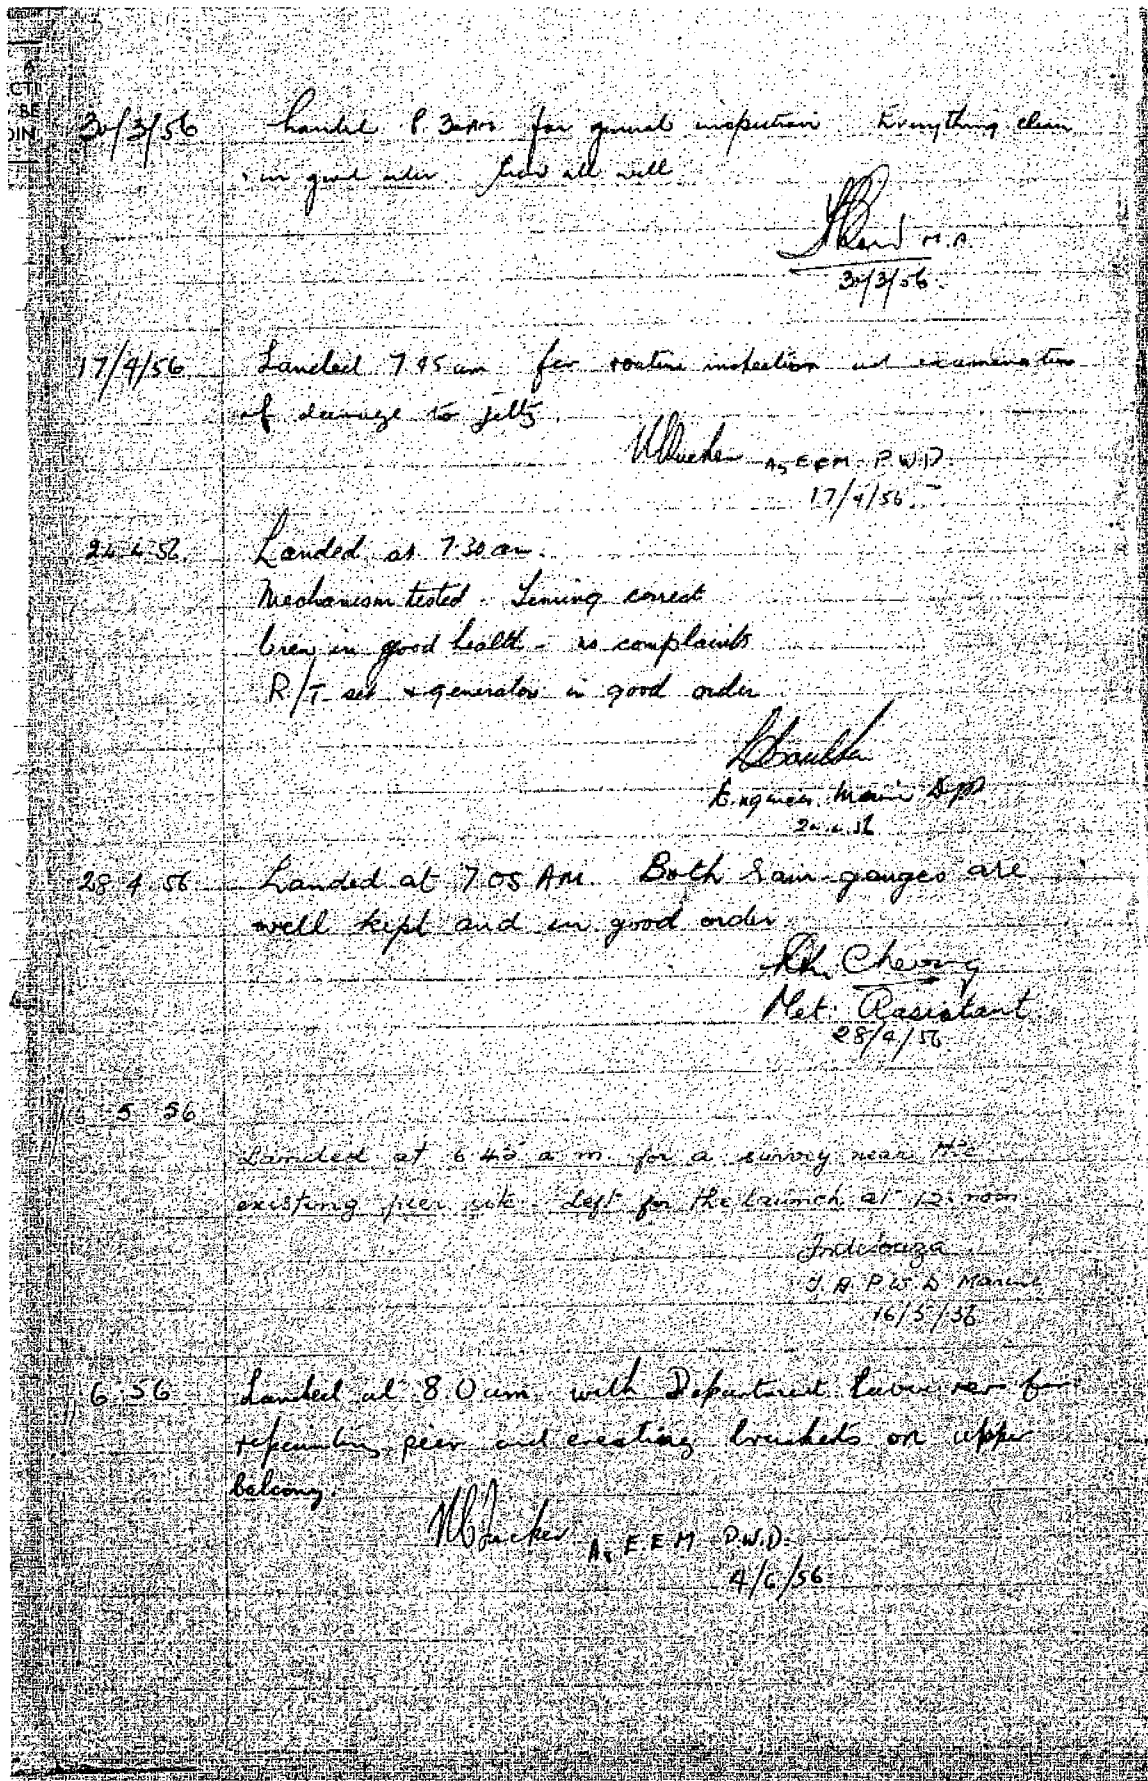 A
CTI
BE
DIN
30/3/56 Landed 8.30am for general inspection Everything clean
& in good order. Crew all well
M.A.
30/3/56.
17/4/56 Landed 7.45 am for routine inspection and examination
of damage to jetty.
Ag E.E.M. P.W.D.
17/4/56.
24.4.56. Landed at 7.30 am.
Mechanism tested - Timing correct
Crew in good health - no complaints
R/T set & generator in good order
Engineer Marine
24.4.56
28.4.56 Landed at 7.05 AM. Both Rain-gauges are
well kept and in good order
Cheong
Met: Assistant.
28/4/56.
5 56
Landed at 6.45 a.m. for a survey near the
existing pier site. Left for the launch at 12. noon
T.A. P.W.D Marine
16/5/56
6.56 Landed at 8.0 am. with Department Labourers for
repainting pier and erecting brackets on upper
balcony.
Tucker Ag E.E.M P.W.D.
4/6/56